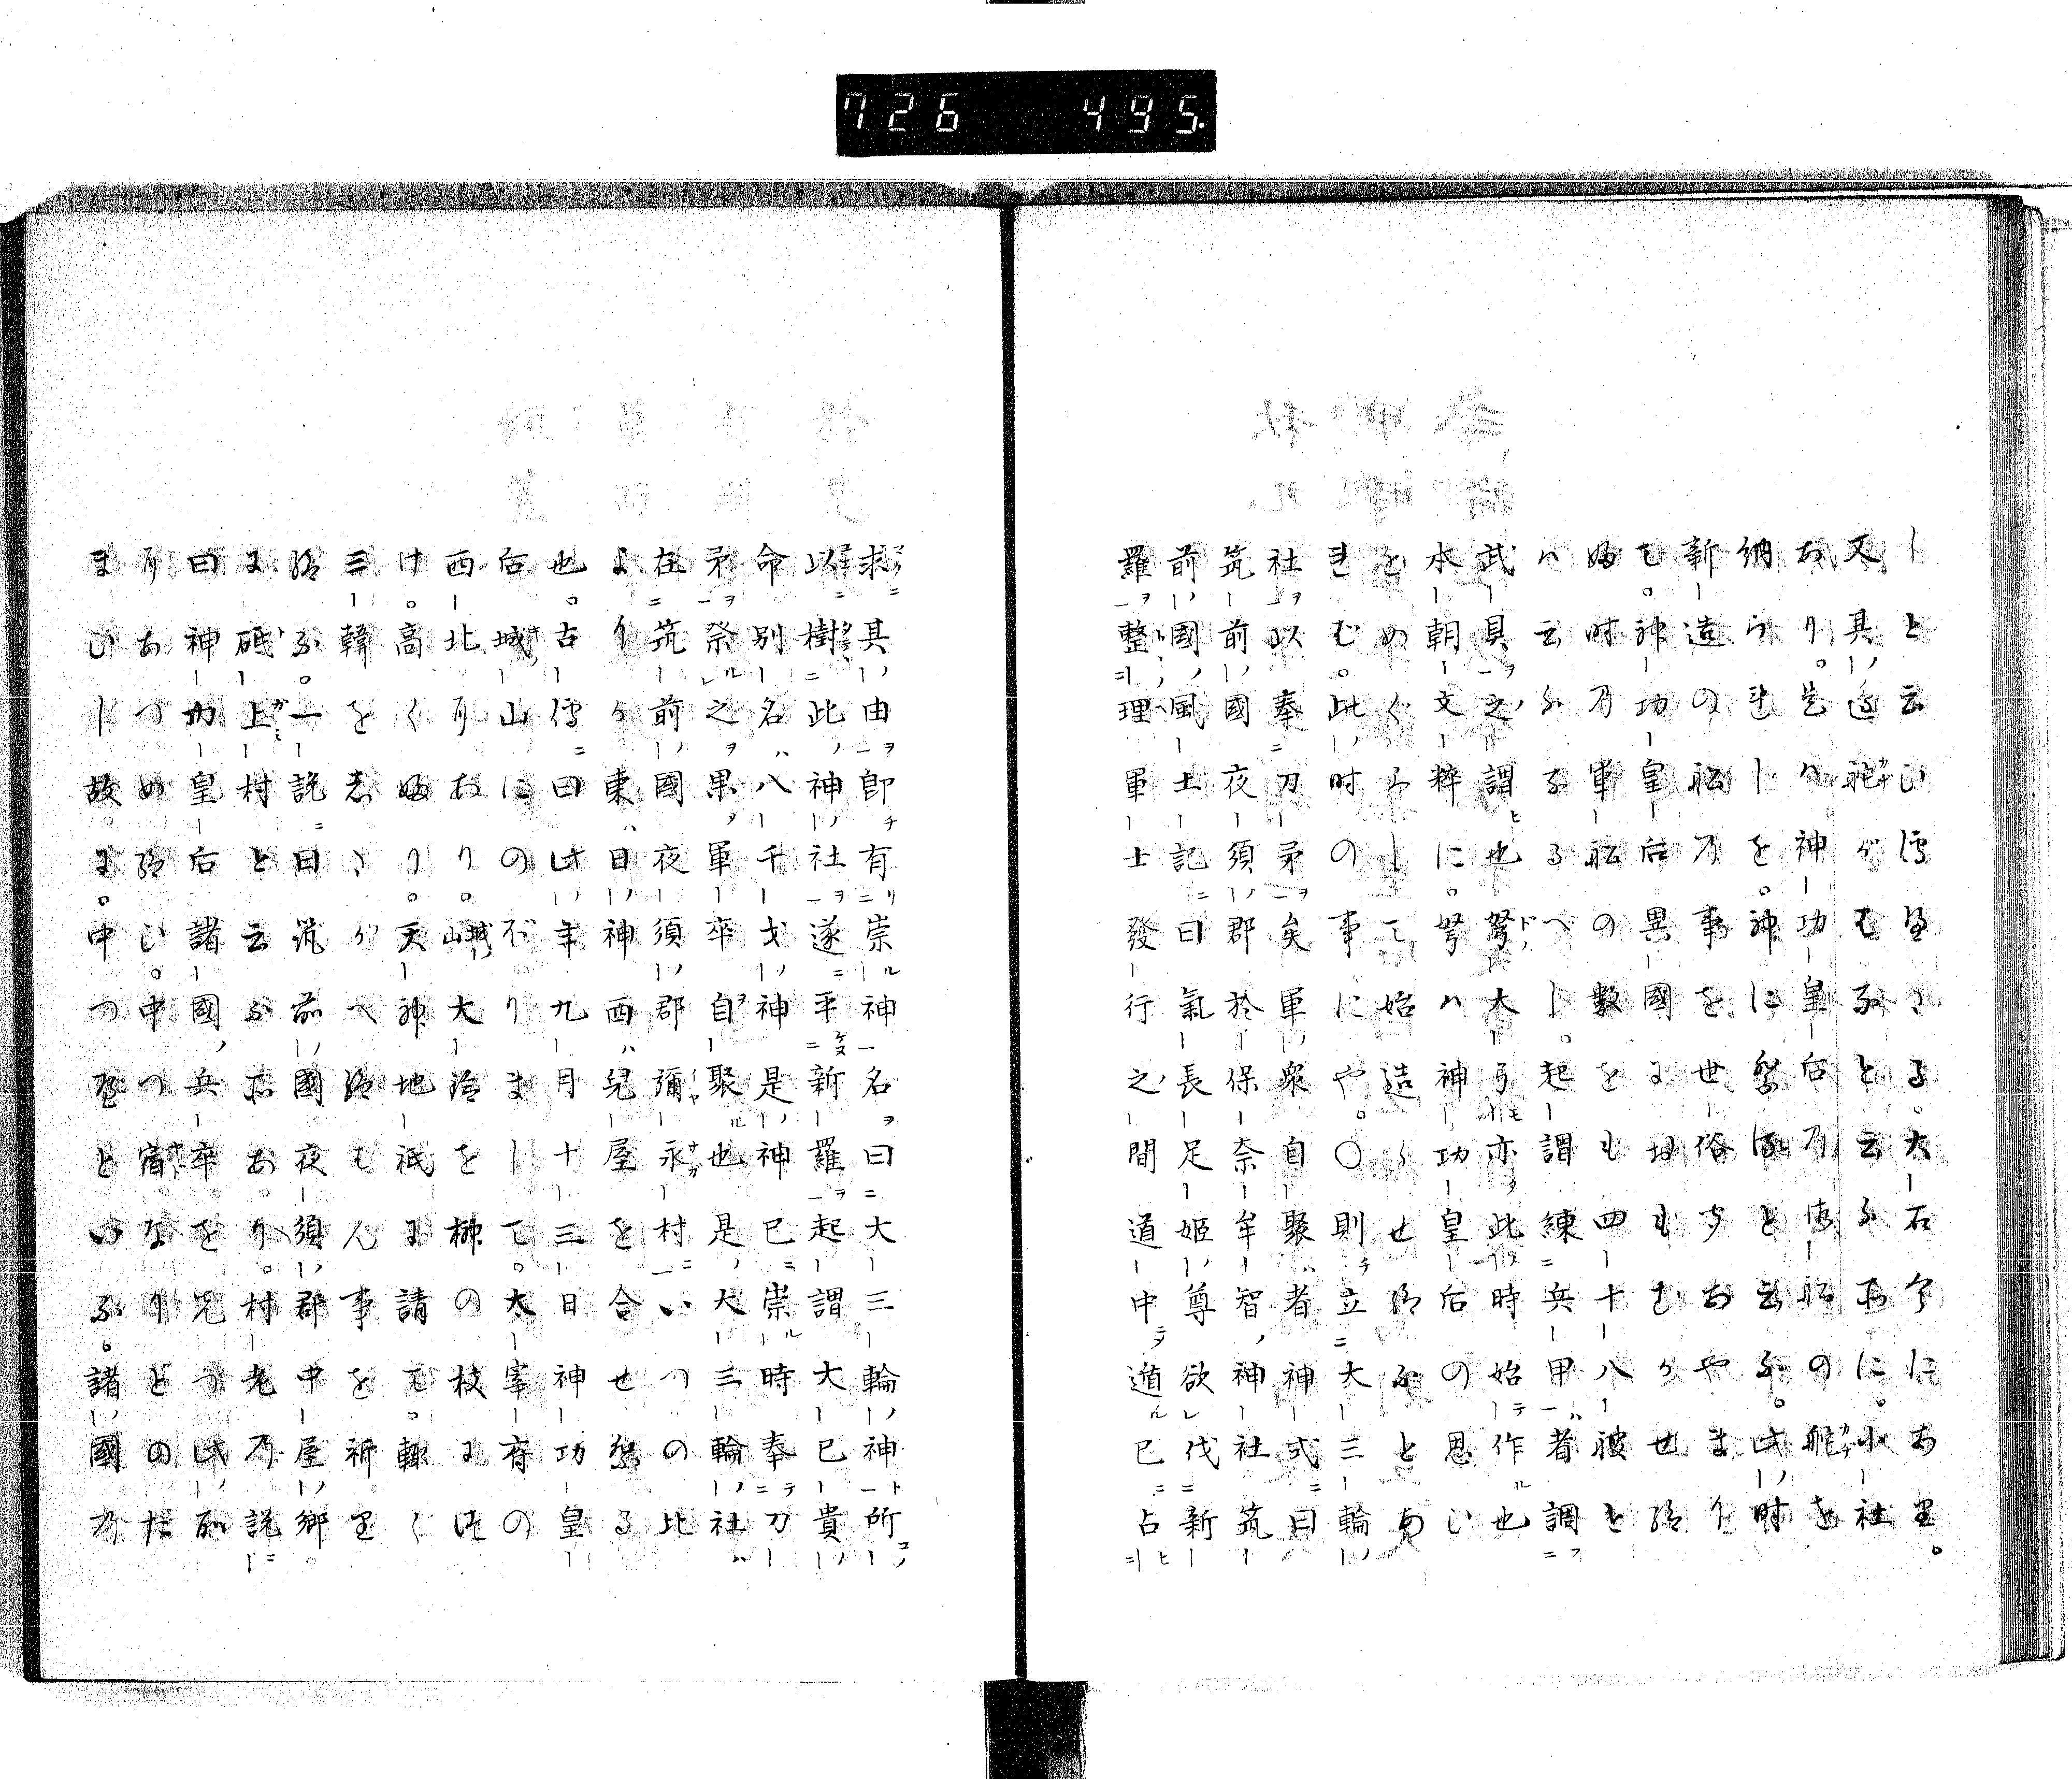 726 495.
しと云ひ傳へたる。大石今にあり。
又其邊舵がむたと云ふ所に。小社
あり。是ハ神功皇后乃御船の舵を
納られしを。神に祭ると云ふ。此時
新造の船乃事を世俗すおやまり
て。神功皇后異國におもむかせ給
ふ時乃軍船の數をも四十八艘と
ハ云ふなるべし。起謂練兵甲者調
武具之謂也弩大弓也亦此時始作也
本朝文粹に。弩ハ神功皇后の思ひ
をめぐらして始造らせ給ふとあ
きむ。此時の事にや。〇則立大三輪
社以奉刀矛矣軍衆自聚者神式曰
筑前國夜須郡於保奈牟智神社筑
前國風土記曰氣長足姫尊欲伐新
羅整理軍士發行之間道中遁巳占
求其由即有崇神名曰大三輪神所
以樹此神社遂平新羅起謂大已貴
命別名ハ八千戈神是神已崇時奉刀
矛祭之果軍卒自聚也是大三輪社
在筑前國夜須郡彌永村いつの比
よりか東ハ日神西ハ兒屋を合せ祭る
也。古傳曰此年九月十三日神功皇
后城山にのぼりまして。太宰府の
西北りおり。城山大濱を柳の枝につ
け。高くあり。天神地祇に請て。輙く
三韓をしたがへ給もん事を祈里
給ふ。一説曰筑前國夜須郡中屋郷
に砥上村と云ふ所あり。村老乃説
曰神功皇后諸國兵卒を先つ此所
りあつめ給ひ。中つ宿なりとのた
まひし故に。中つ屋といふ。諸國乃